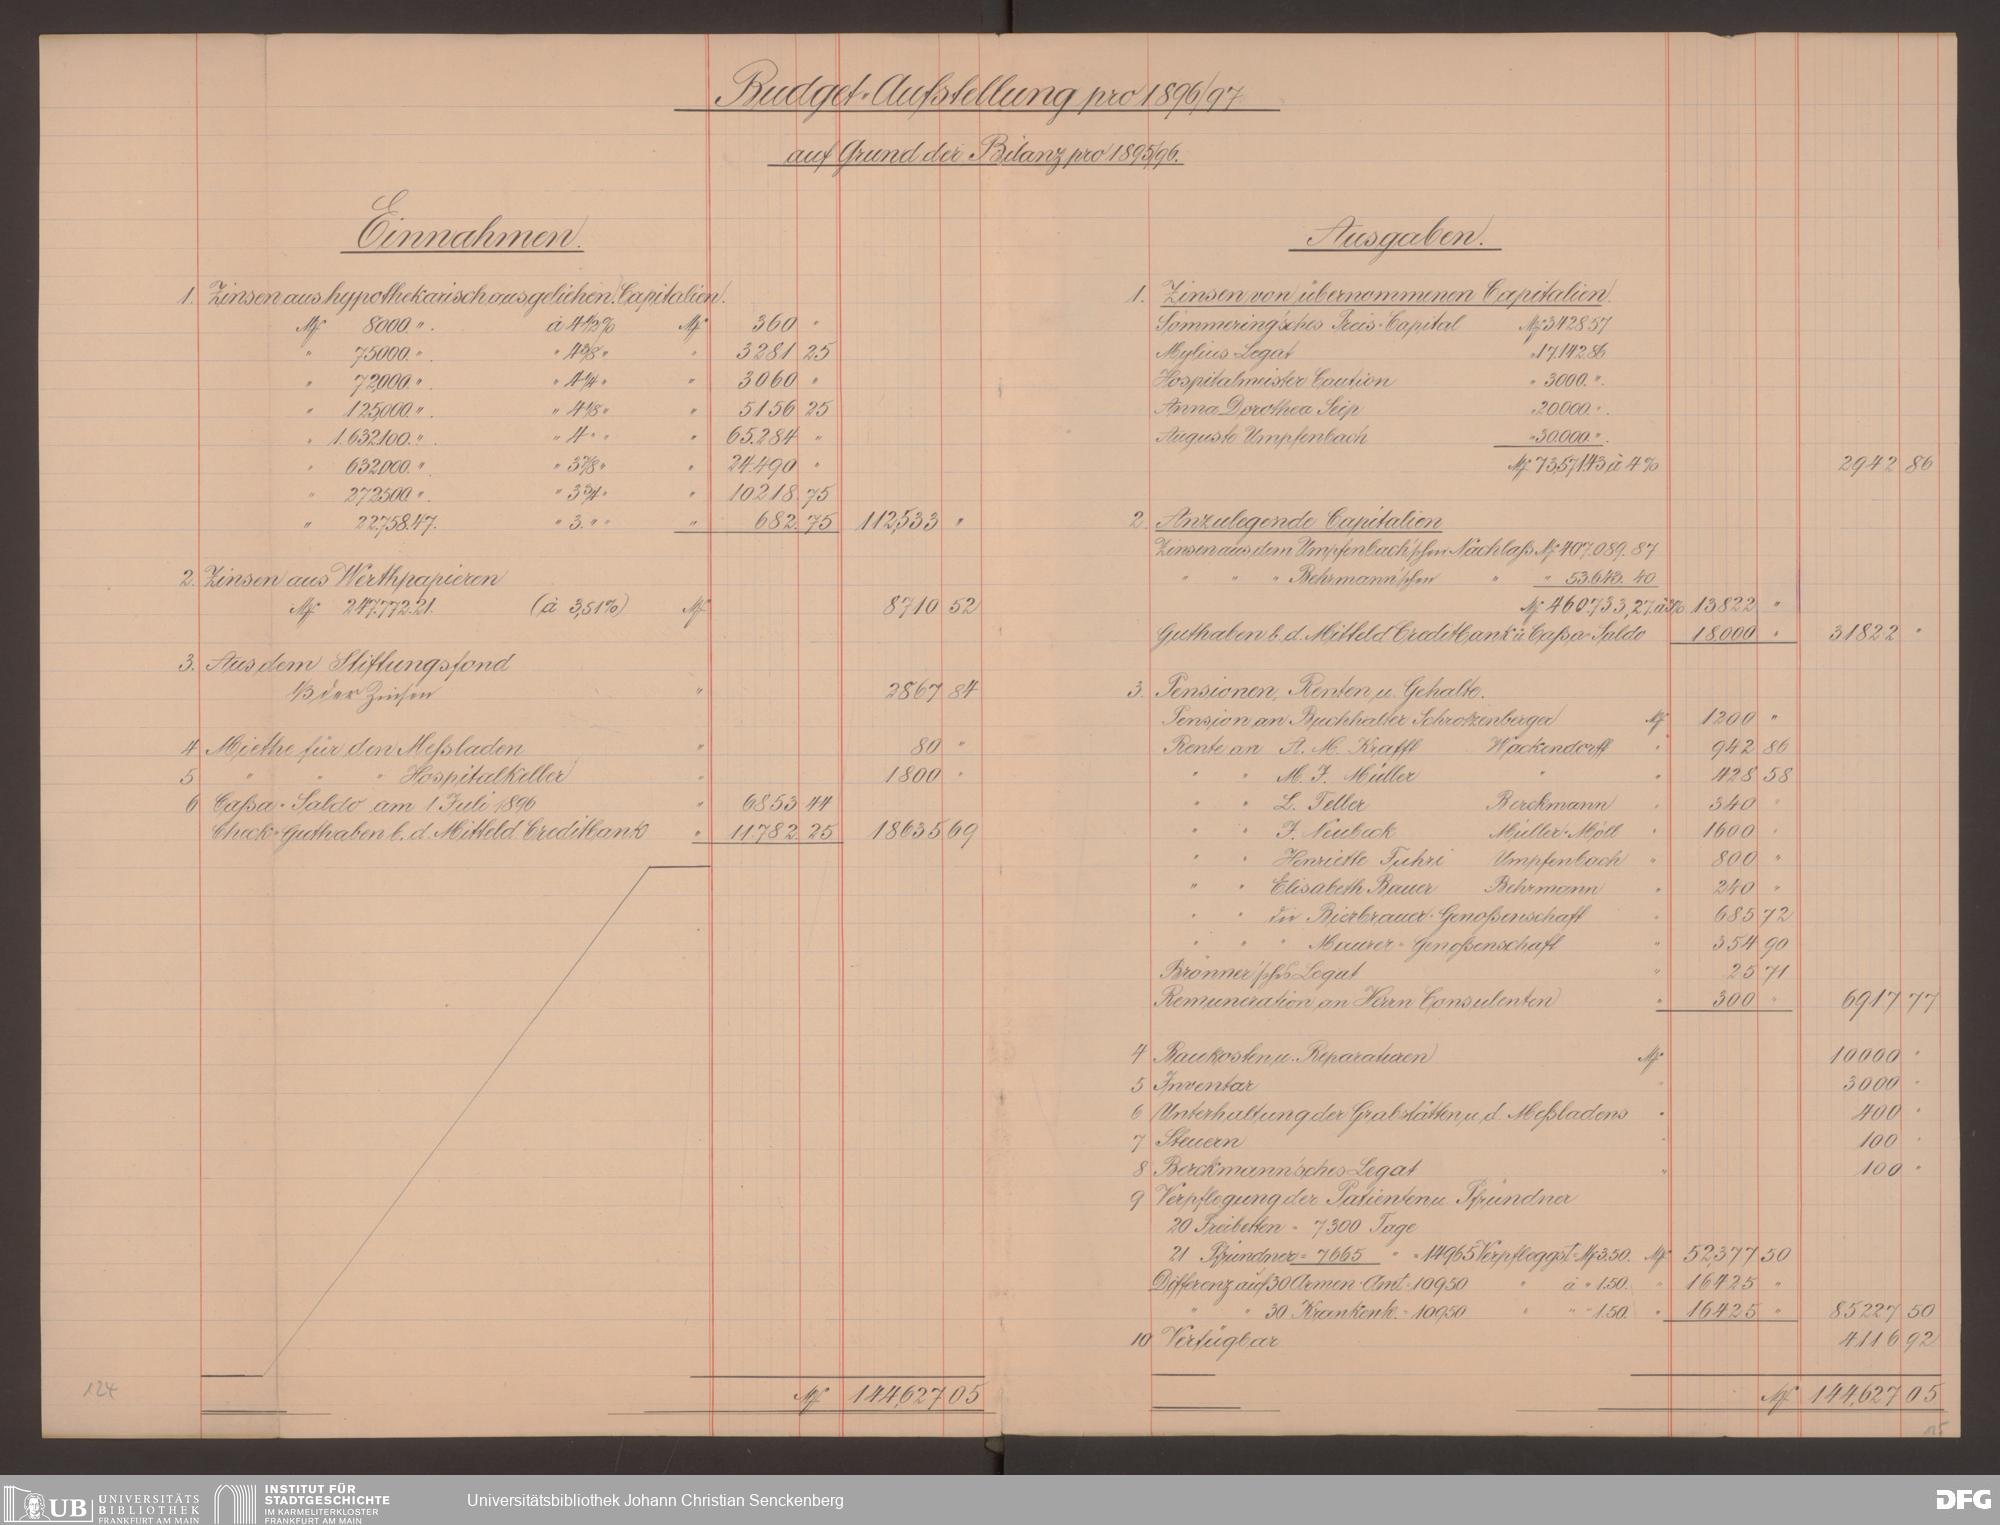 Budget-Aufstellung pro 1896/97
auf Grund der Bilanz pro 1895/96.
Einnahmen.
1. Zinsen aus hypothekarisch ausgeliehen. Capitalien.
M 8000. ". à 4 1/2 % M 360 "
" 75000. ". " 4 3/8 " " 3281 25
" 72,000. ". " 4 1/4 " " 3060 "
" 125,000. ". " 4 1/8 " " 5156 25
" 1.632.100. ". " 4 " " " 65.284 "
" 632.000. ". " 3 7/8 " " 24.490 "
" 272500. ". " 3 3/4 " " 10218. 75
" 22.758.47. " 3. " " " 682. 75 112,533 "
2. Zinsen aus Werthpapieren
M 247.772.21. (à 3,51 %) M 8710 52
3. Aus dem Stiftungsfond
1/3 der Zinsen " 2867 84
4 Miethe für den Meßladen " 80 "
5 " " " Hospitalkeller " 1800 "
6 Caßa-Saldo am 1. Juli 1896 " 6853 44
Check-Guthaben b. d. Mitteld. Creditbank " 11.782. 25 18635 69
M 144,627 05
124
Ausgaben.
1. Zinsen von übernommenen Capitalien.
Sömmering'sches Preis-Capital M 3428.57
Mylius Legat " 17.142.86
Hospitalmeister Caution " 3000. ".
Anna Dorothea Seip " 20000. ".
Auguste Umpfenbach " 30.000. ".
M 73,571.43 à 4 % 2942 86
2. Anzulegende Capitalien
Zinsen aus dem Umpfenbach'schen Nachlaß M 407.089. 87
" " " Behrmann'schen " " 53.643. 40
M 460.733,27. à 3% 13822 "
Guthaben b. d. Mitteld. Creditbank u. Caßa-Saldo 18000 " 31822 "
3. Pensionen, Renten u. Gehalte.
Pension an Buchhalter Schrotzenberger M 1200 "
Rente an A. M. Krafft Wackendorff " 942 86
" " M. F. Müller " " 428 58
" " L. Teller Berckmann " 340 "
" " F. Neubeck Müller-Möll " 1600 "
" " Henriette Fuhri Umpfenbach " 800 "
" " Elisabeth Bauer Behrmann " 240 "
" " die Bierbrauer-Genoßenschaft " 685 72
" " " Maurer-Genoßenschaft " 354 90
Brönner'sches Legat " 25 71
Remuneration an Herrn Consulenten " 300 " 6917 77
4 Baukosten u. Reparaturen M 10000 "
5 Inventar " 3000 "
6 Unterhaltung der Grabstätten u. d. Meßladens " 400 "
7 Steuern " 100 "
8 Berckmann'sches Legat " 100 "
9 Verpflegung der Patienten u. Pfründner
20 Freibetten = 7300 Tage
21 Pfründner = 7665 " = 14965 Verpfleggst. M 3.50. M 52,377 50
Differenz auf 30 Armen-Amt = 10950 " à " 1.50. " 16425 "
" " 30 Krankenk. = 10950 " " " 1.50. " 16425 " 85227 50
10 Verfügbar 4116 92
M 144,627 05
125
UB UNIVERSITÄTS
BIBLIOTHEK
FRANKFURT AM MAIN
INSTITUT FÜR
STADTGESCHICHTE
IM KARMELITERKLOSTER
FRANKFURT AM MAIN
Universitätsbibliothek Johann Christian Senckenberg
DFG